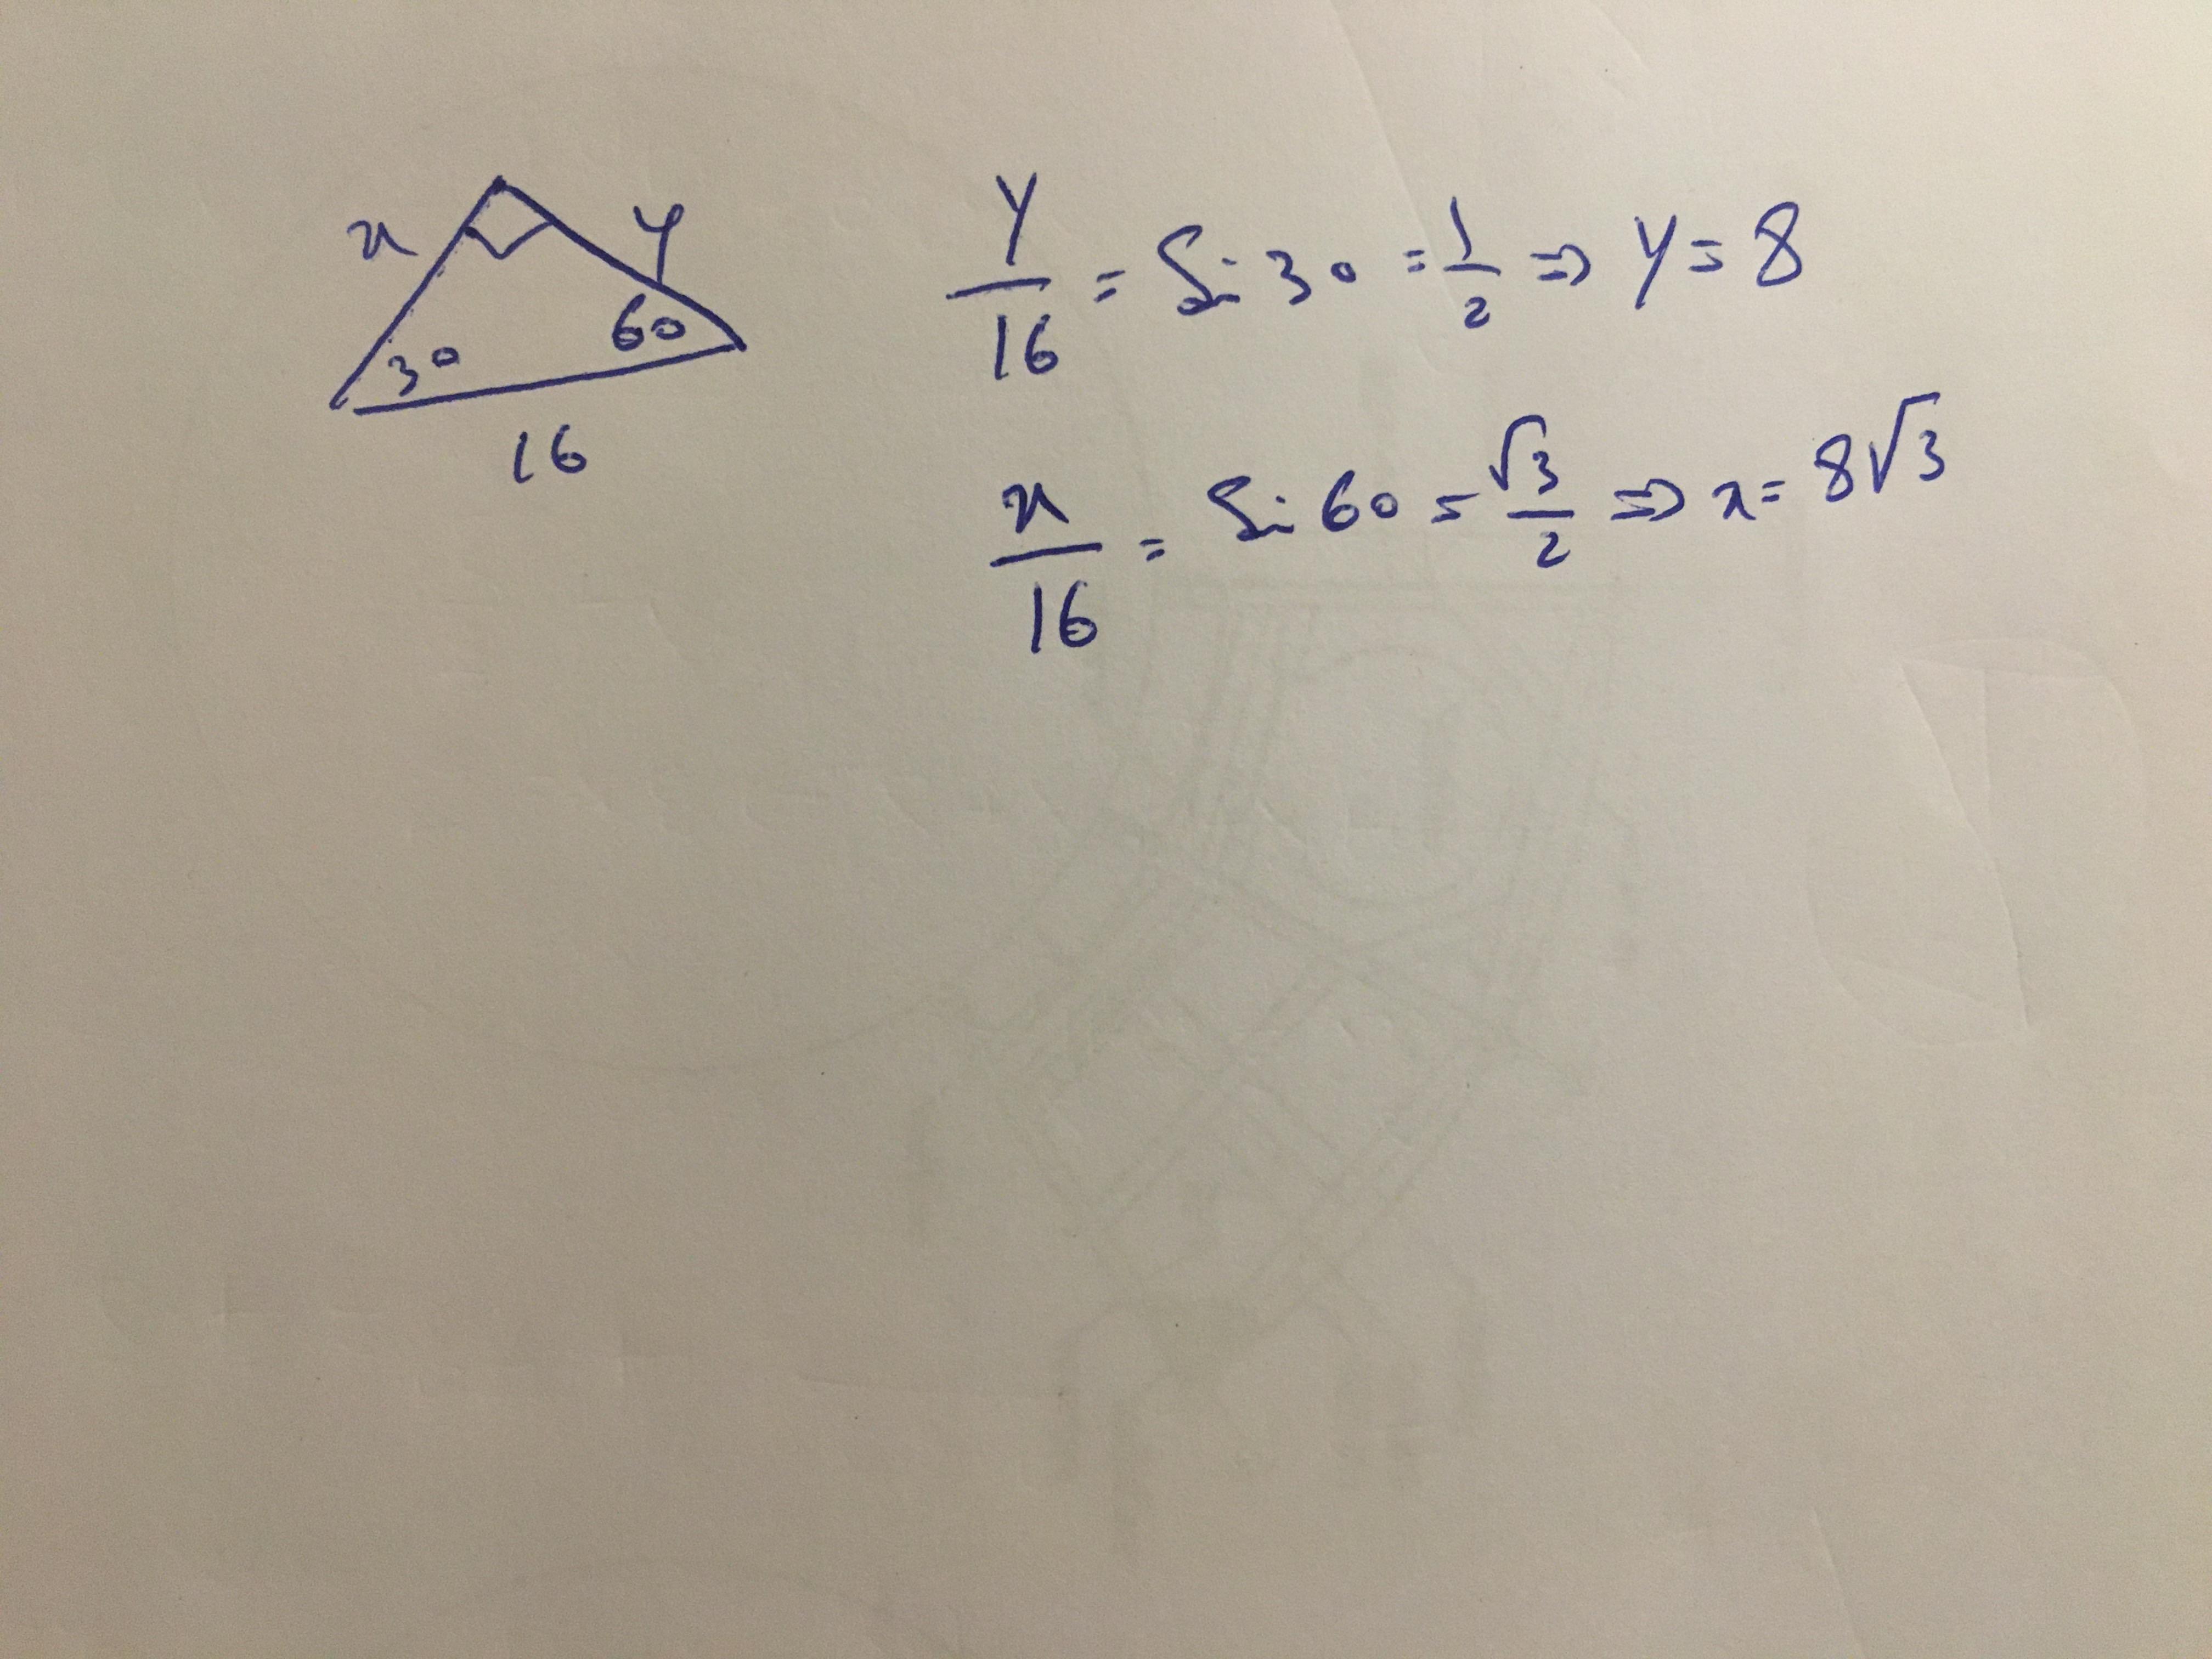 x
y
30
60
16
y/16 = Sin 30 = 1/2 ⇒ y = 8
x/16 = Sin 60 = √3/2 ⇒ x = 8√3